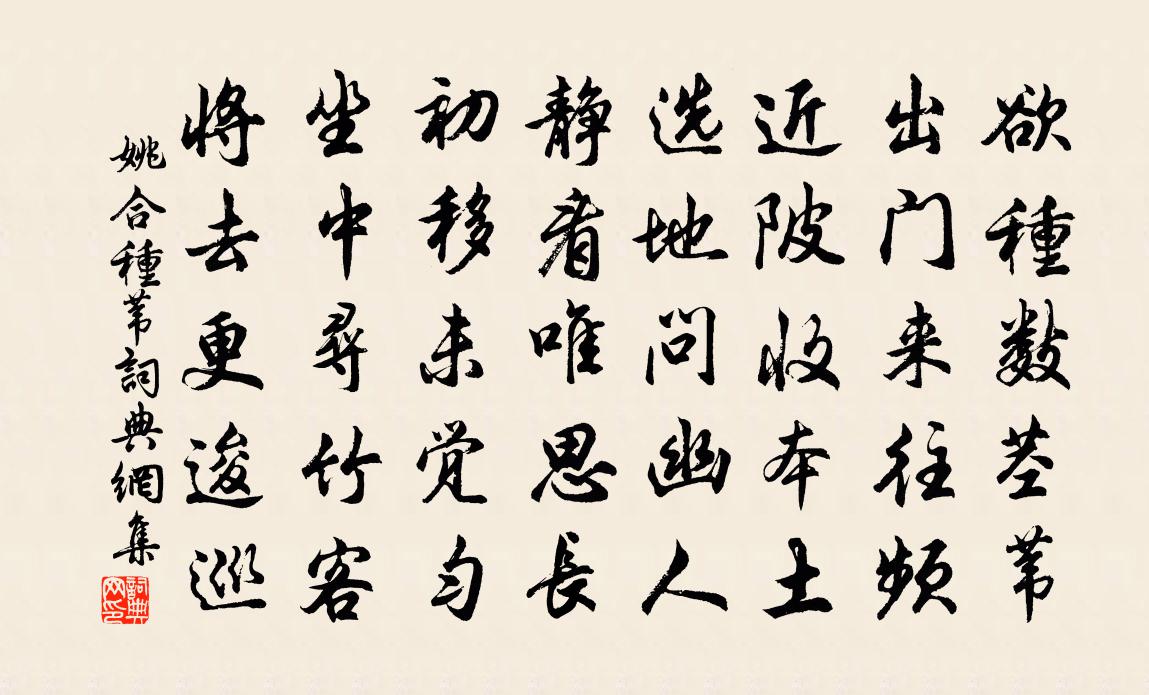 欲種數茎苇
出门来往頻
近陂收本土
选地问幽人
静看唯思長
初移未觉匀
坐中尋竹客
将去更逡巡
姚合種苇詞典網集
詞典网印